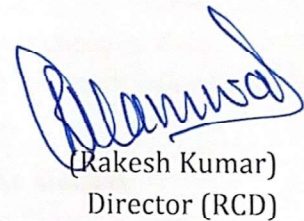 (Rakesh Kumar)
Director (RCD)